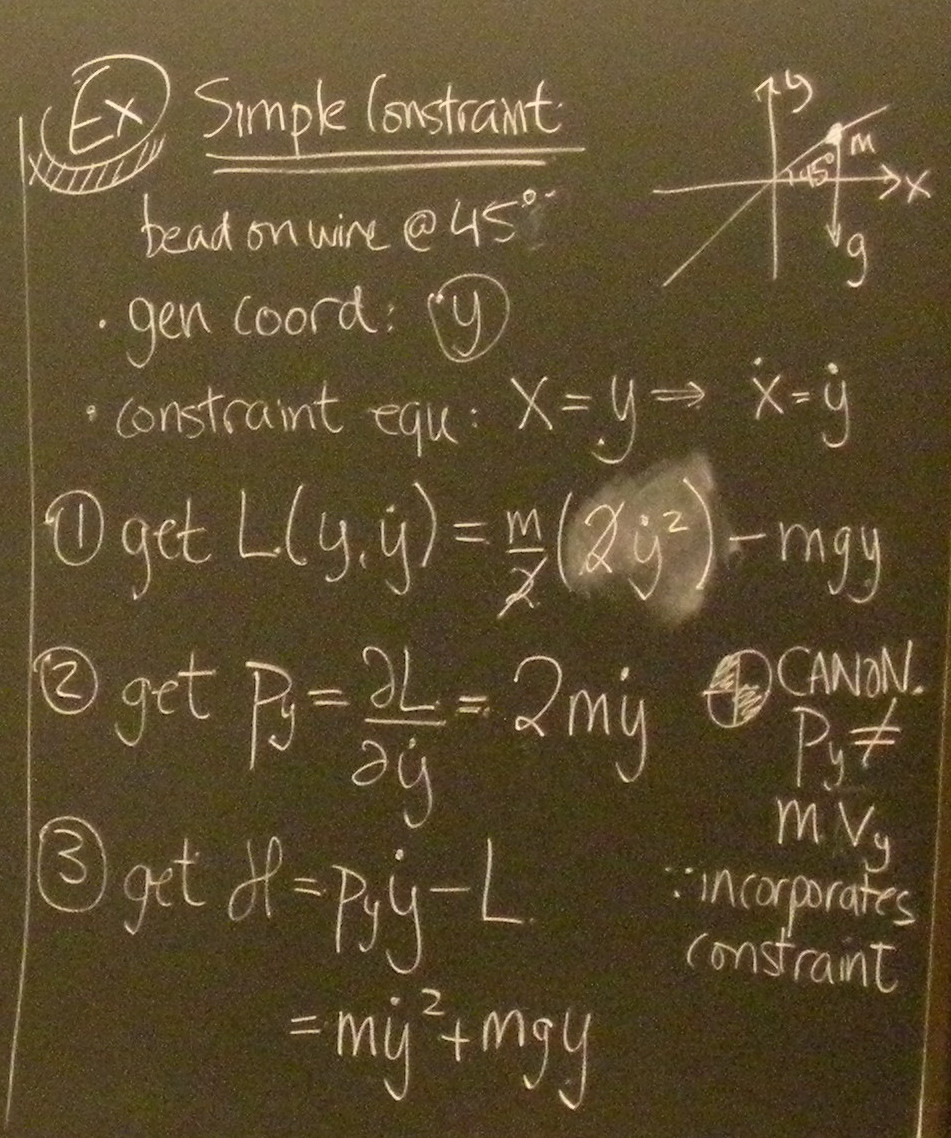 Ex Simple Constraint
y
m
45°
x
g
bead on wire @ 45°
· gen coord: y
· constraint equ: x = y ⇒ ẋ = ẏ
① get L(y,ẏ) = m/2 (2ẏ²) - mgy
② get p_y = ∂L/∂ẏ = 2mẏ
CANON.
P_y ≠
m V_y
∵ incorporates
constraint
③ get H = p_y ẏ - L
= mẏ² + mgy